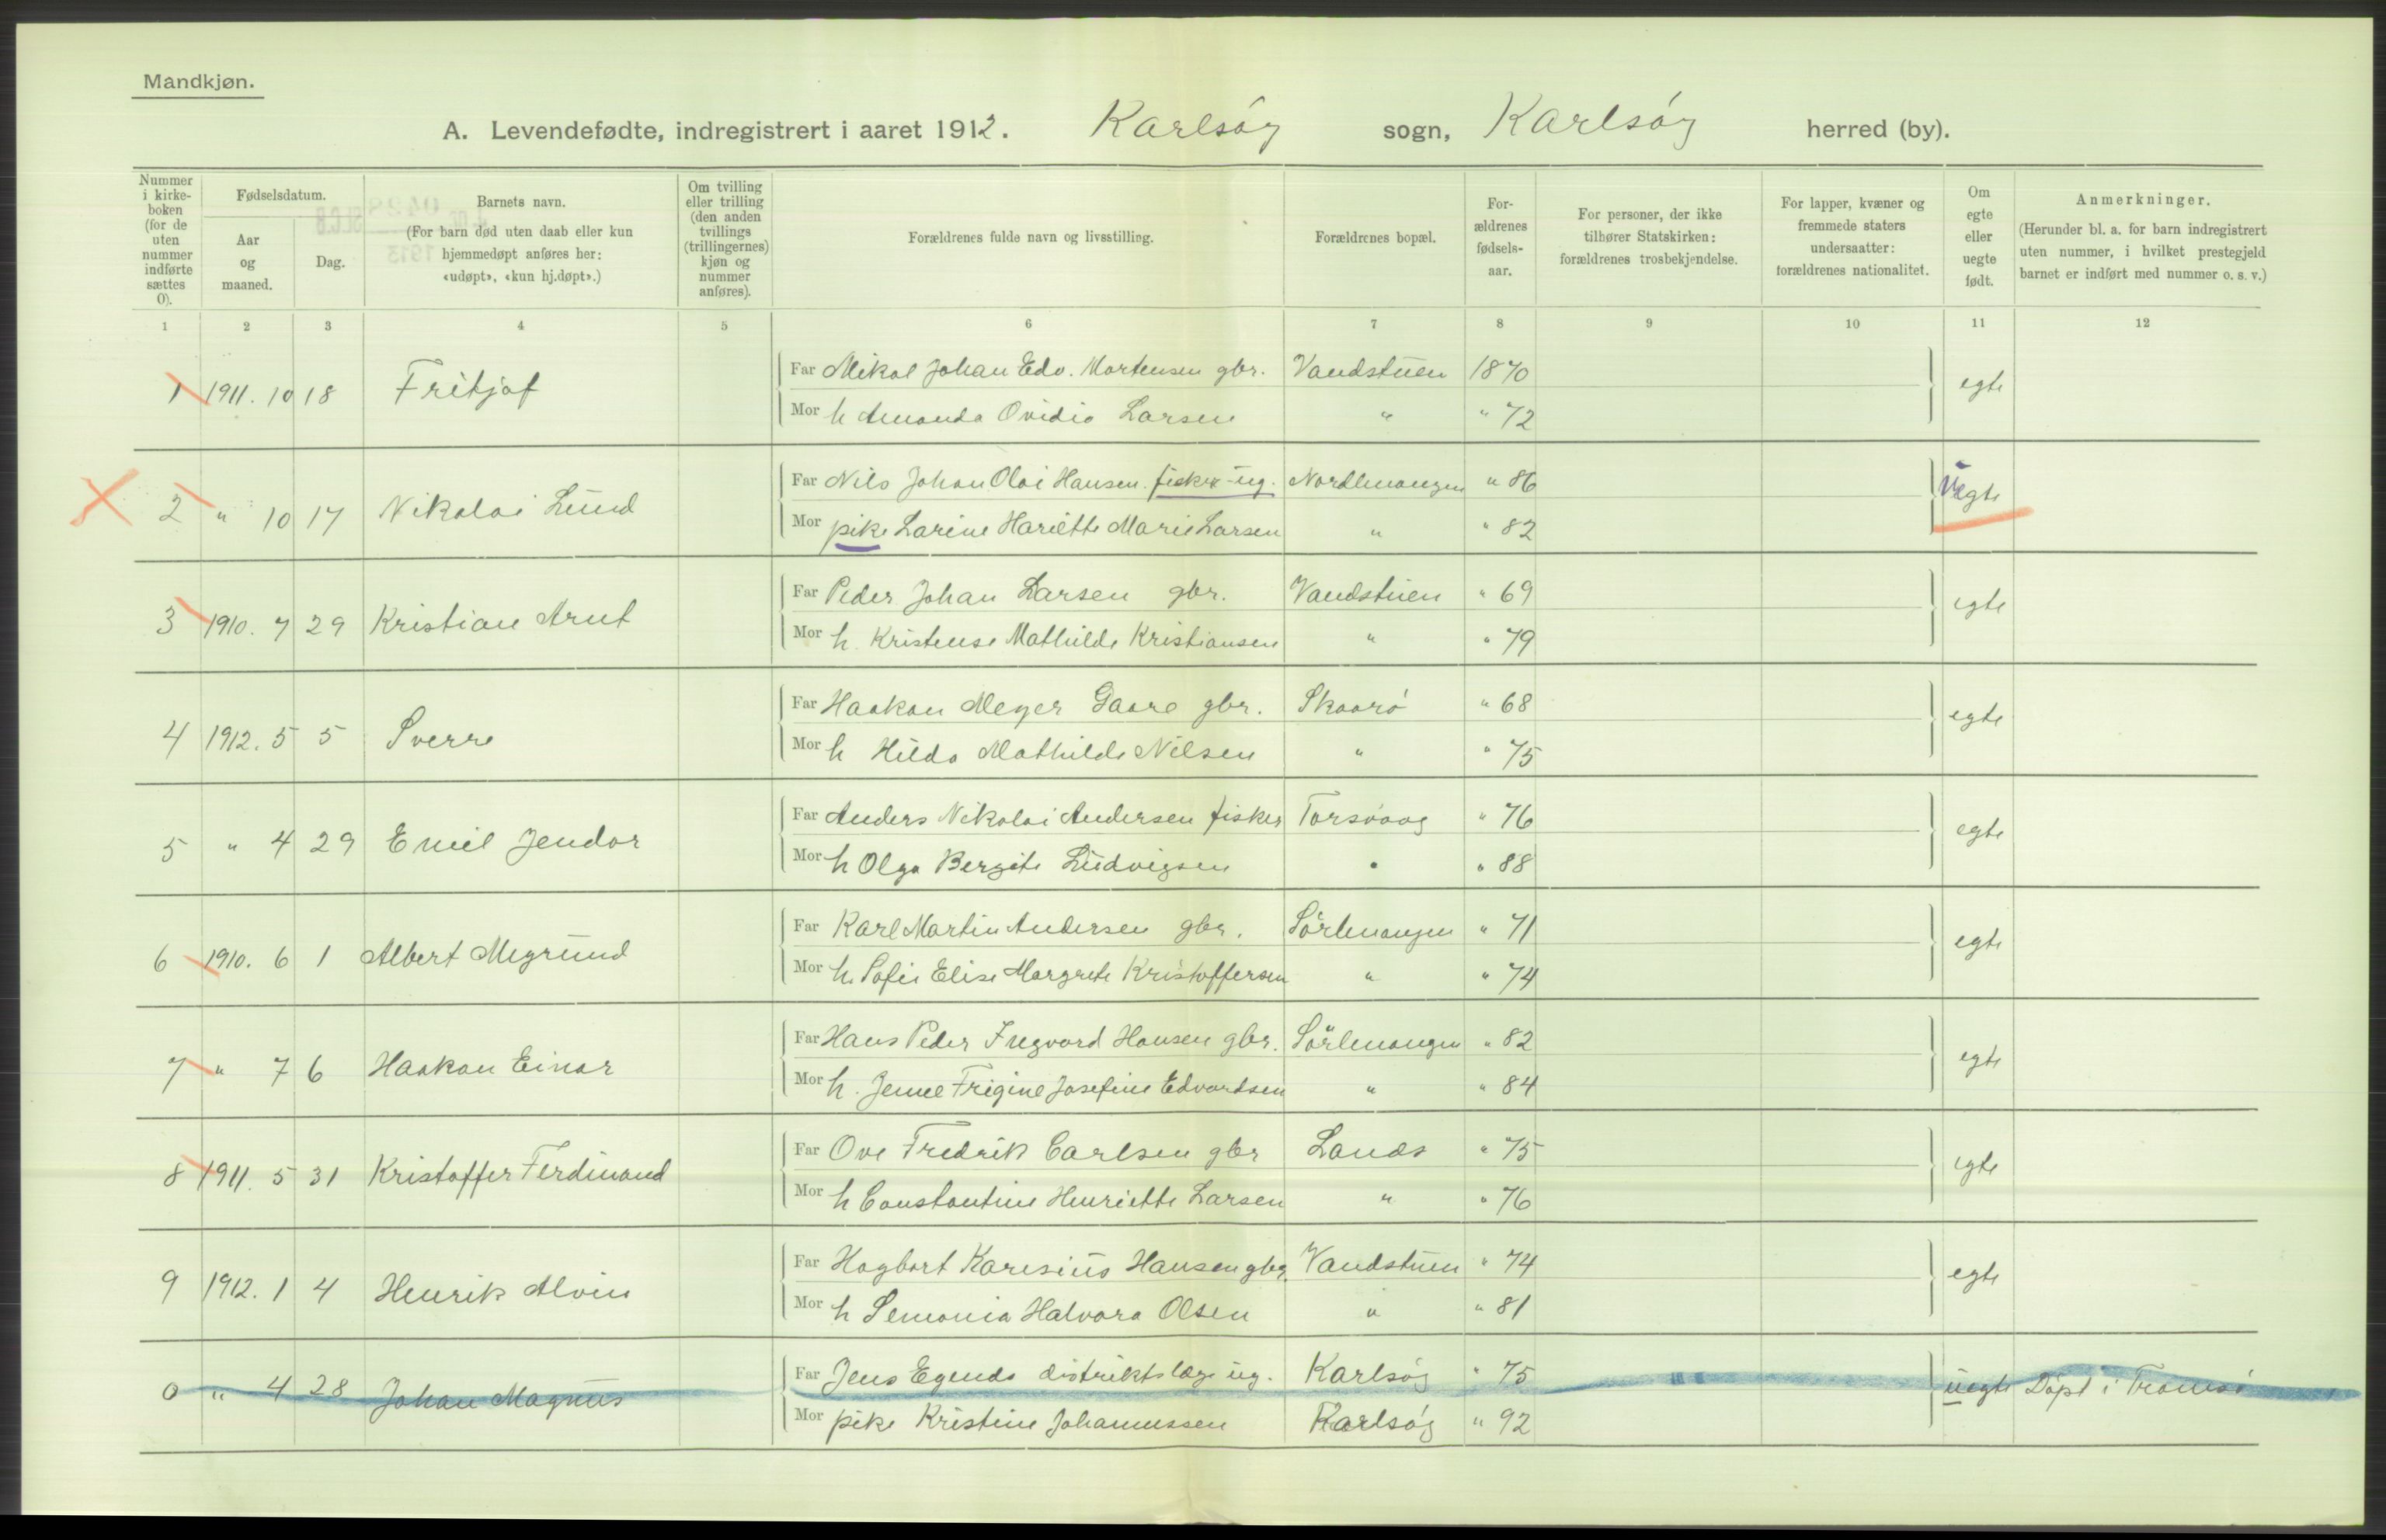 Mandkjøn.
A. Levendefødte, indregistrert i aaret 1912. Karlsöy sogn, Karlsöy herred (by).
Nummer i kirke-boken (for de uten nummer indførte sættes 0).
Fødselsdatum.
Aar og maaned.
Dag.
Barnets navn.
(For barn død uten daab eller kun hjemmedøpt anføres her: «udøpt», «kun hj.døpt».)
Om tvilling eller trilling (den anden tvillings (trillingernes) kjøn og nummer anføres).
Forældrenes fulde navn og livsstilling.
Forældrenes bopæl.
For-ældrenes fødsels-aar.
For personer, der ikke tilhører Statskirken: forældrenes trosbekjendelse.
For lapper, kvæner og fremmede staters undersaatter: forældrenes nationalitet.
Om egte eller uegte født.
Anmerkninger.
(Herunder bl. a. for barn indregistrert uten nummer, i hvilket prestegjeld barnet er indført med nummer o. s. v.)
1 2 3 4 5 6 7 8 9 10 11 12
1 1911. 10 18 Fritjof Far Mikal Johan Edv. Mortensen gbr. Vandstuen 1870 egte
Mor h Amanda Ovidia Larsen " " 72
2 " 10 17 Nikolai Lund Far Nils Johan Olai Hansen. fisker ug. Nordlenangen " 86 Uegte
Mor pike Larine Hariette Marie Larsen " " 82
3 1910. 7 29 Kristian Arnt Far Peder Johan Larsen gbr. Vandstuen " 69 egte
Mor h. Kristense Mathilde Kristiansen " " 79
4 1912. 5 5 Sverre Far Haakon Meyer Gaare gbr. Skaarö " 68 egte
Mor h Hilda Mathilde Nilsen " " 75
5 " 4 29 Emil Jendor Far Anders Nikolai Andersen fisker Torsvaag " 76 egte
Mor h Olga Bergite Ludvigsen " " 88
6 1910. 6 1 Albert Megrund Far Karl Martin Andersen gbr. Sörlenangen " 71 egte
Mor h. Sofie Elise Margrete Kristoffersen " " 74
7 " 7 6 Haakon Einar Far Hans Peder Ingvard Hansen gbr. Sörlenangen " 82 egte
Mor h. Jenne Frigine Josefine Edvardsen " " 84
8 1911. 5 31 Kristoffer Ferdinand Far Ove Fredrik Carlsen gbr Lands " 75 egte
Mor h Constantine Henriette Larsen " " 76
9 1912. 1 4 Henrik Alvin Far Hagbart Karesius Hansen gbr. Vandstuen " 74 egte
Mor h Semonia Halvara Olsen " " 81
0 " 4 28 Johan Magnus Far Jens Egends distriktslæge ug. Karlsöy " 75 uegte Döpt i Tromsö
Mor pike Kristine Johannessen Karlsöy " 92